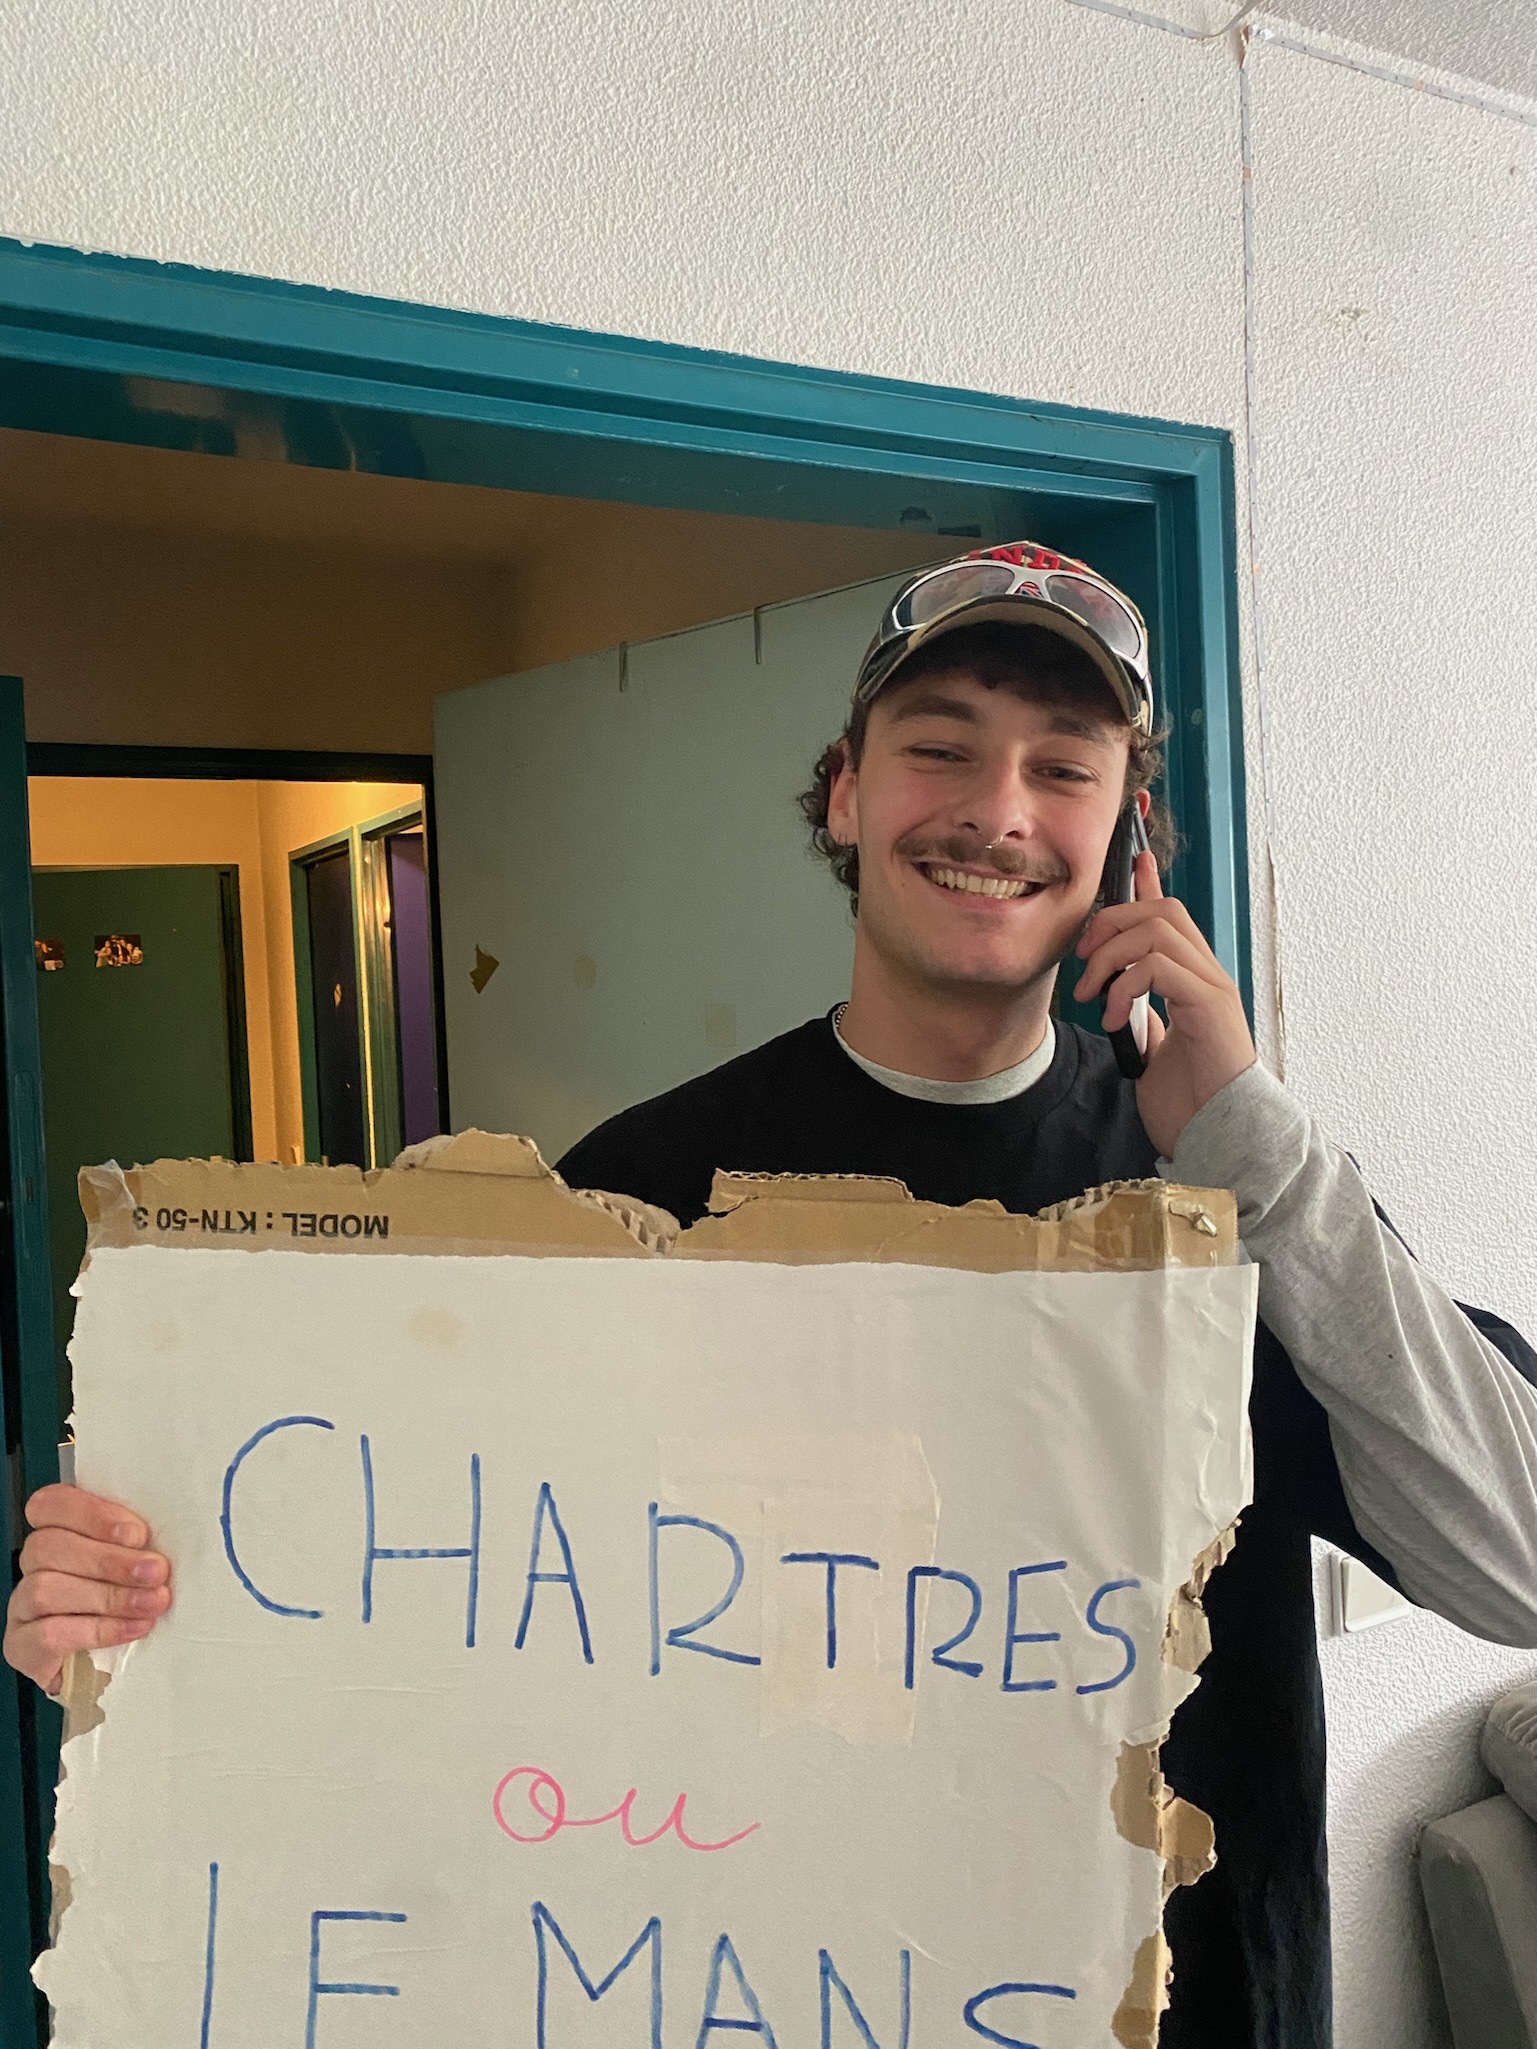 MODEL : KTN-50 3
CHARTRES
ou
LE MANS